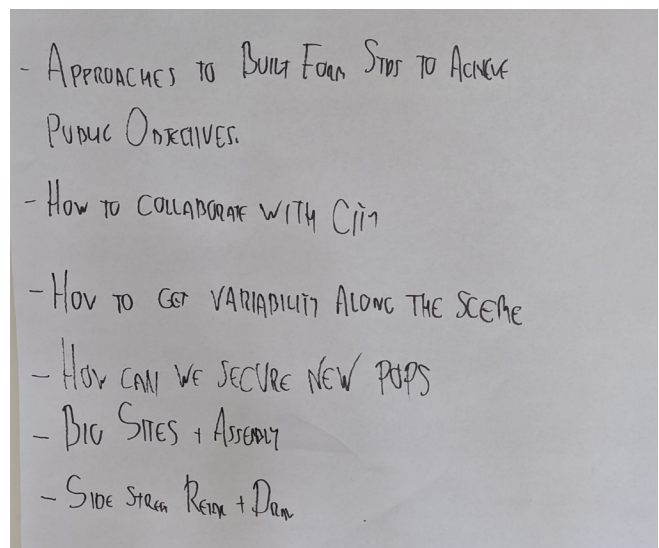 - APPROACHES TO BUILT FORM STDS TO ACHIEVE
PUBLIC OBJECTIVES.
- HOW TO COLLABORATE WITH CITY
- HOW TO GET VARIABILITY ALONG THE SCENE
- HOW CAN WE SECURE NEW POPS
- BIG SITES + ASSEMBLY
- SIDE STREET RETAIL +